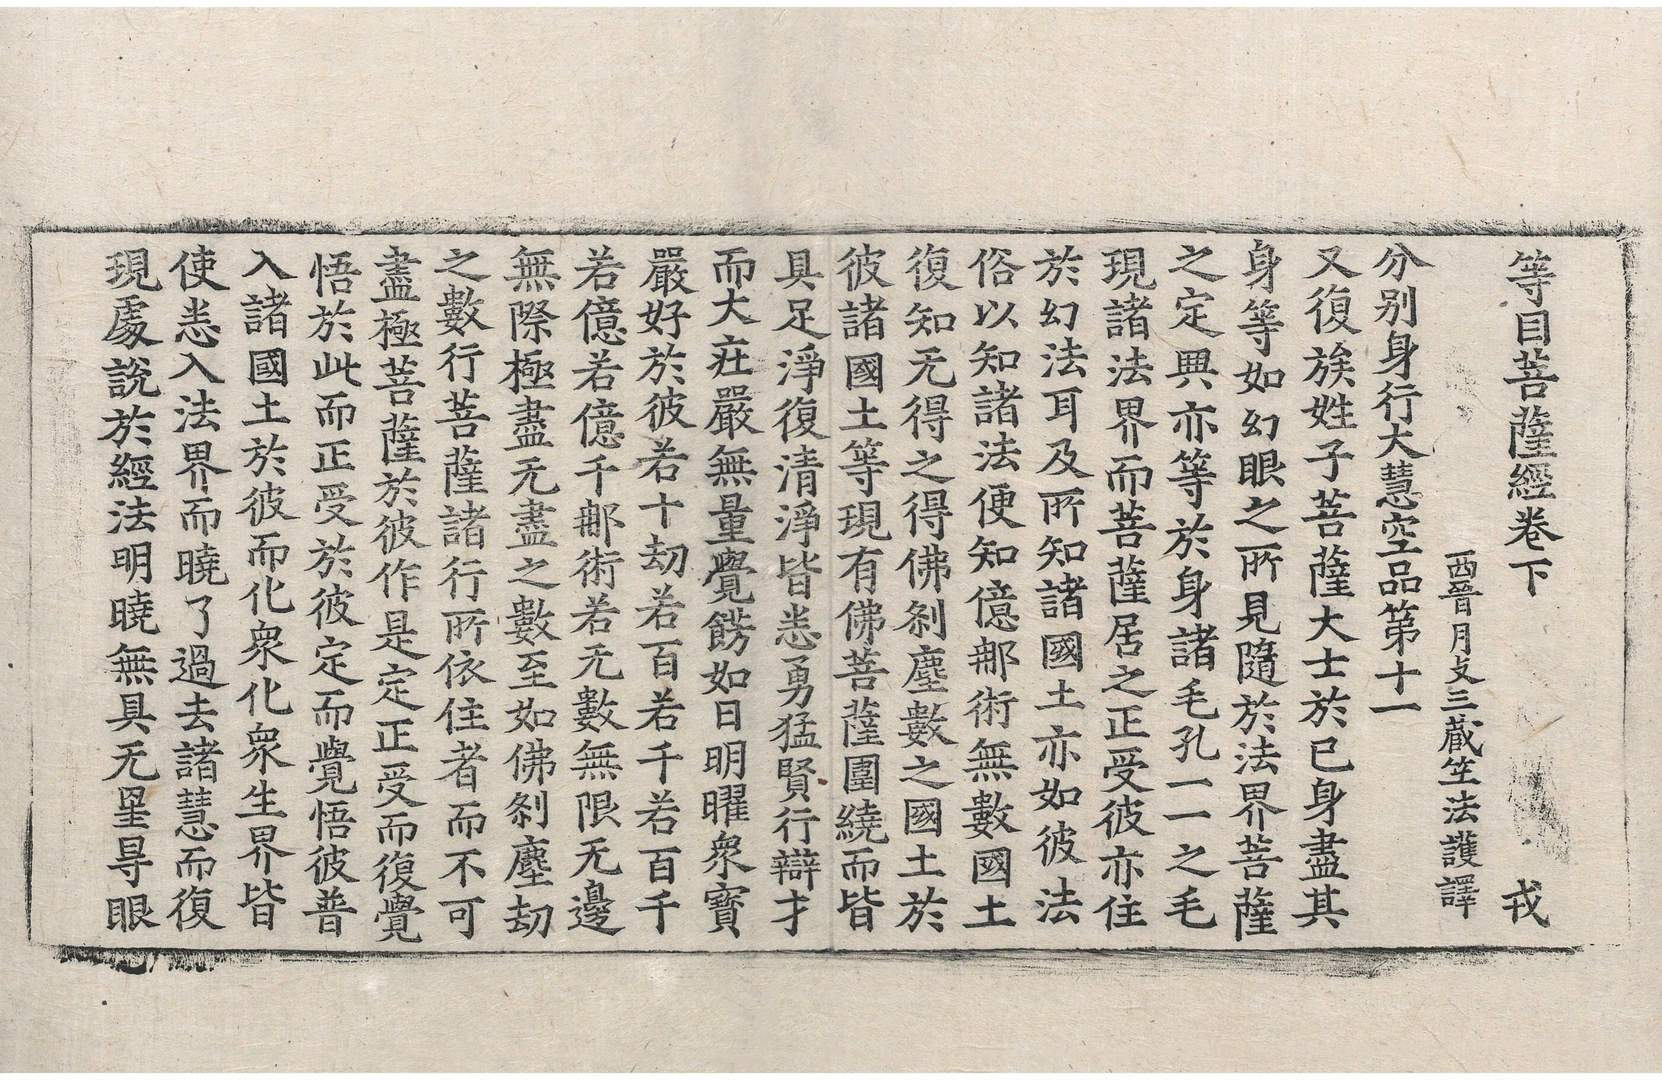 等目菩薩經卷下 戎
西晉月支三藏竺法護譯
分別身行大慧空品第十一
又復族姓子菩薩大士於已身盡其
身等如幻眼之所見隨於法界菩薩
之定興亦等於身諸毛孔一一之毛
現諸法界而菩薩居之正受彼亦住
於幻法耳及所知諸國土亦如彼法
俗以知諸法便知億那術無數國土
復知无得之得佛刹塵數之國土於
彼諸國土等現有佛菩薩圍繞而皆
具足淨復清淨皆悉勇猛賢行辯才
而大莊嚴無量覺餝如日明曜衆寶
嚴好於彼若十劫若百若千若百千
若億若億千那術若无數無限无邊
無際極盡无盡之數至如佛刹塵劫
之數行菩薩諸行所依住者而不可
盡極菩薩於彼作是定正受而復覺
悟於此而正受於彼定而覺悟彼普
入諸國土於彼而化衆化衆生界皆
使悉入法界而曉了過去諸慧而復
現處說於經法明曉無具无星㝵眼